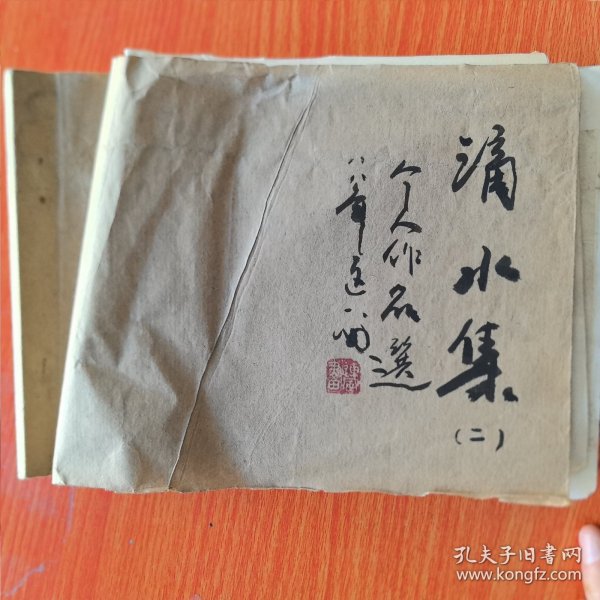 滴水集
（二）
个人作品選
八八年
孔夫子旧書网
www.kongfz.com